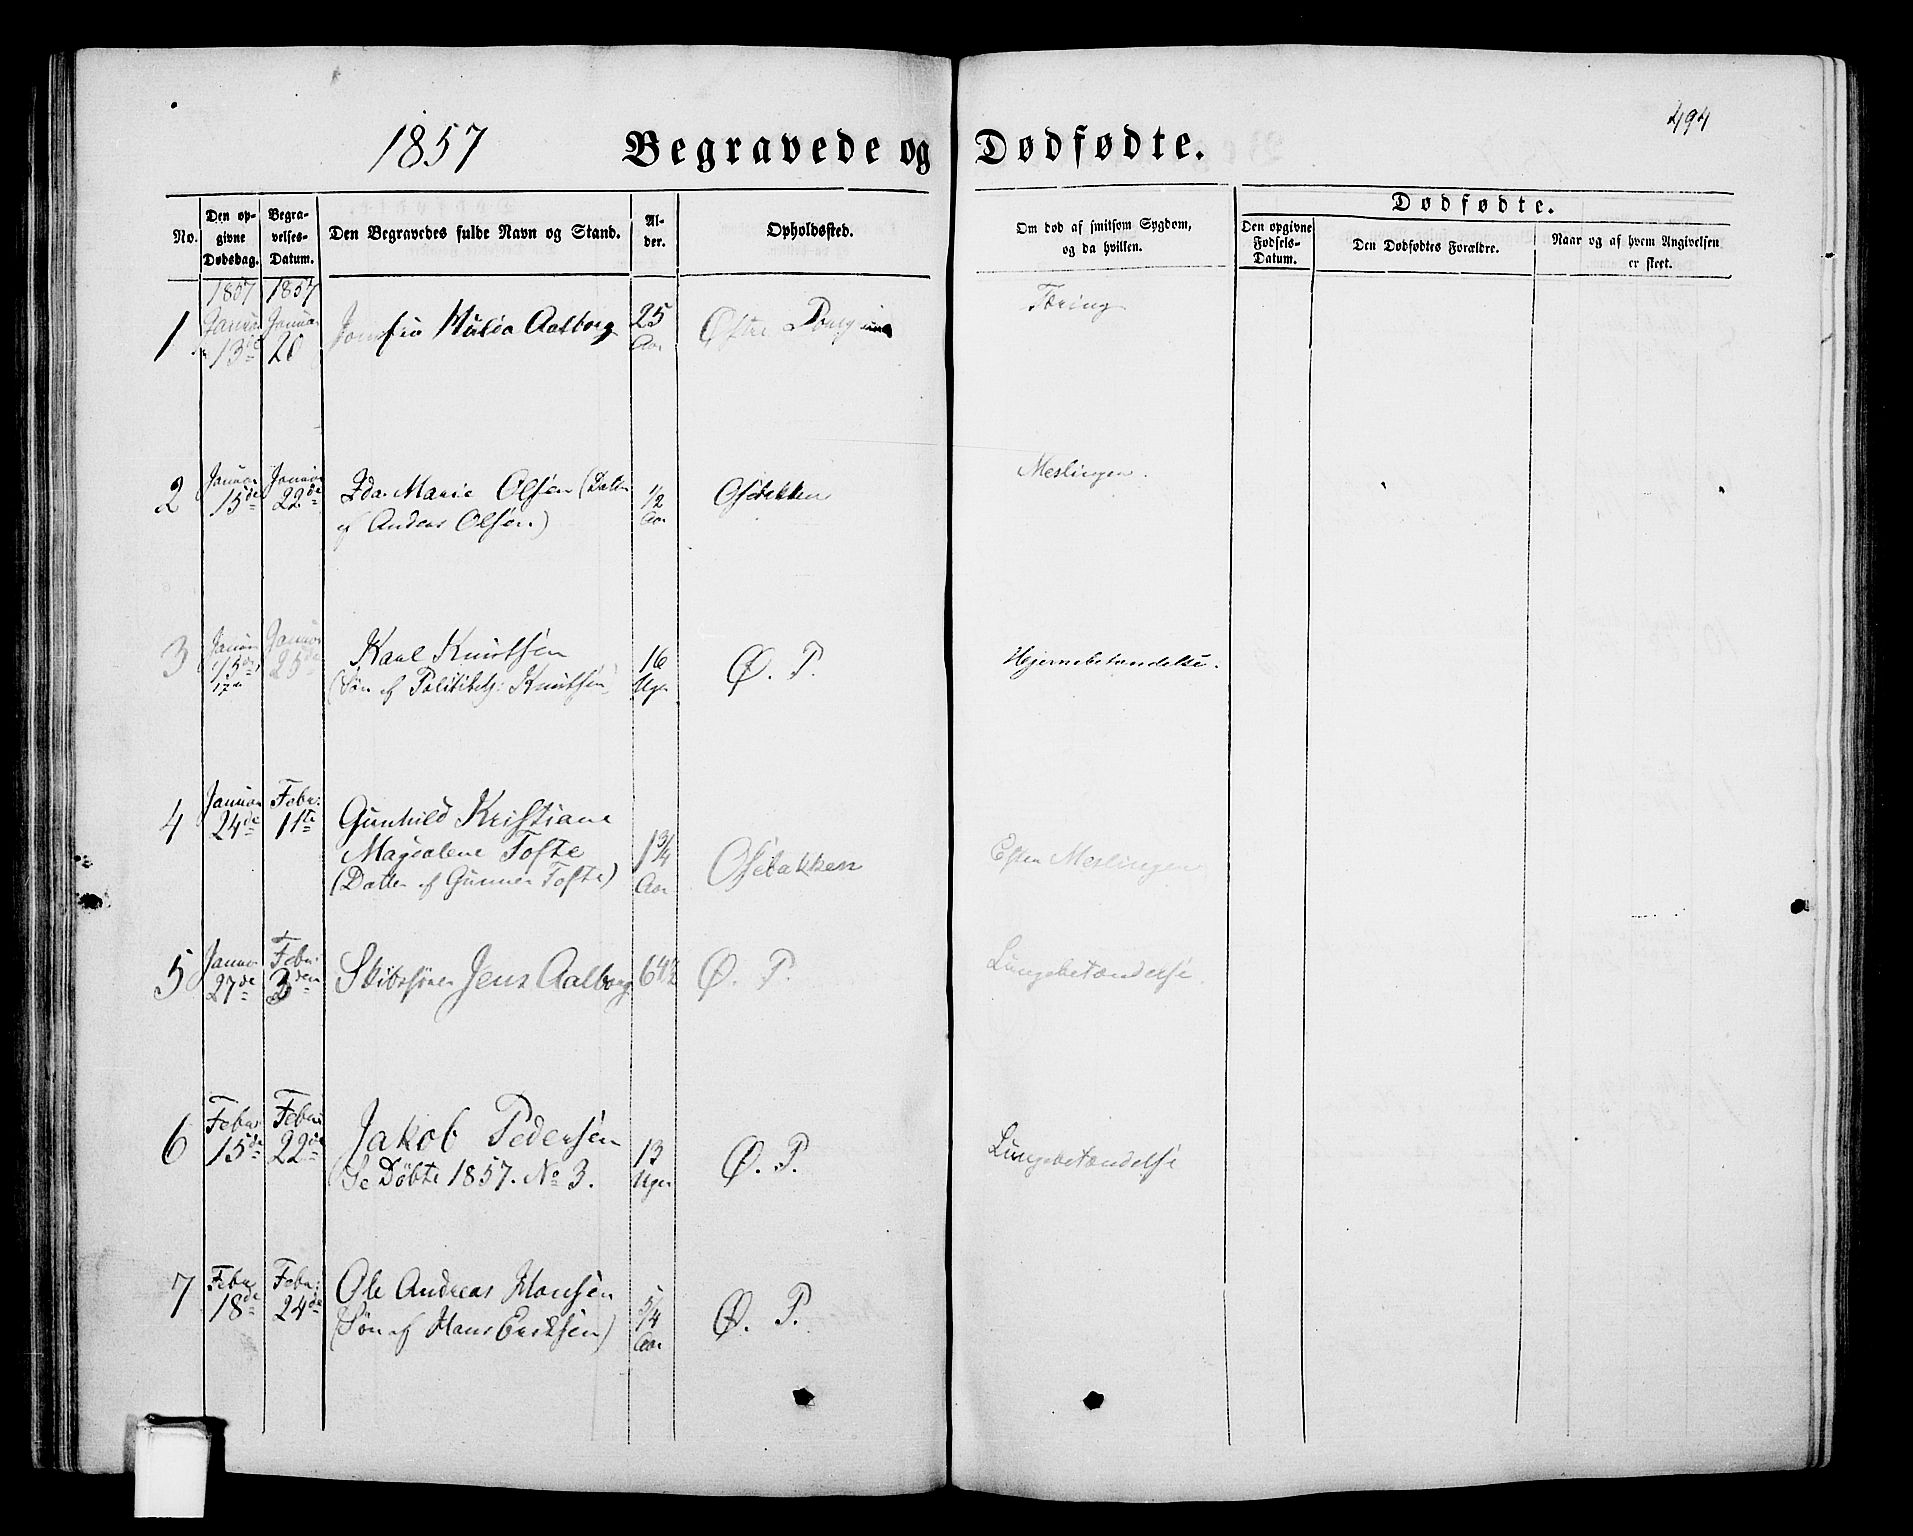 494
1857 Begravede og Dødfødte.
No.
Den opgivne Dødsdag.
Begravelses-Datum.
Den Begravedes fulde Navn og Stand.
Alder.
Opholdssted.
Om død af smitsom Sygdom, og da hvilken.
Dødfødte.
Den opgivne Fødsels-Datum.
Den Dødfødtes Forældre.
Naar og af hvem Angivelsen er skeet.
1857 1857
1 Januar 13de Januar 20 Hulda Aalborg 25 Aar Østre Tæring
2 Januar 15de Januar 22de Ida Marie Olsen (Datter
af Andreas Olsen) 1/2 Aar Osebakken Meslingen.
3 Januar 15de 17de Januar 25de Karl Knutsen
(Søn af Politibetj: Knutsen) 16 Uger Ø. P. Hjernebetændelse.
4 Januar 24de Febr: 1ste Gunhild Kristiane
Magdalene Tofte
(Datter af Gunner Tofte) 1 3/4 Aar Osebakken Efter Meslingen
5 Januar 27de Febr. 3den Jens Aalborg 64 1/2 Ø. P. Lungebetændelse.
6 Febr. 15de Febr. 22de Jakob Pedersen
(Se Døbte 1857. No 3. 13 Uger Ø. P. Lungebetændelse
7 Febr. 18de Febr: 24de Ole Andreas Hansen
(Søn af Hans Eriksen) 5/4 Aar Ø. P.